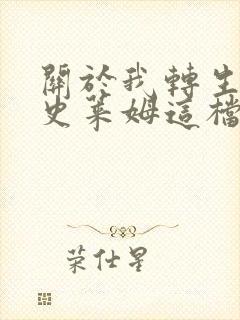 關於我轉生
史萊姆這檔
荣仕星